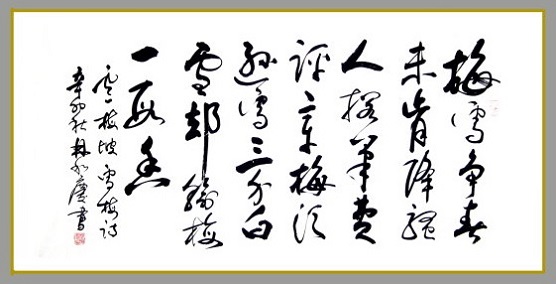 梅雪争春
未肯降骚
人搁筆費
评章梅须
逊雪三分白
雪却输梅
一段香
卢梅坡雪梅诗
辛卯秋林 慶書